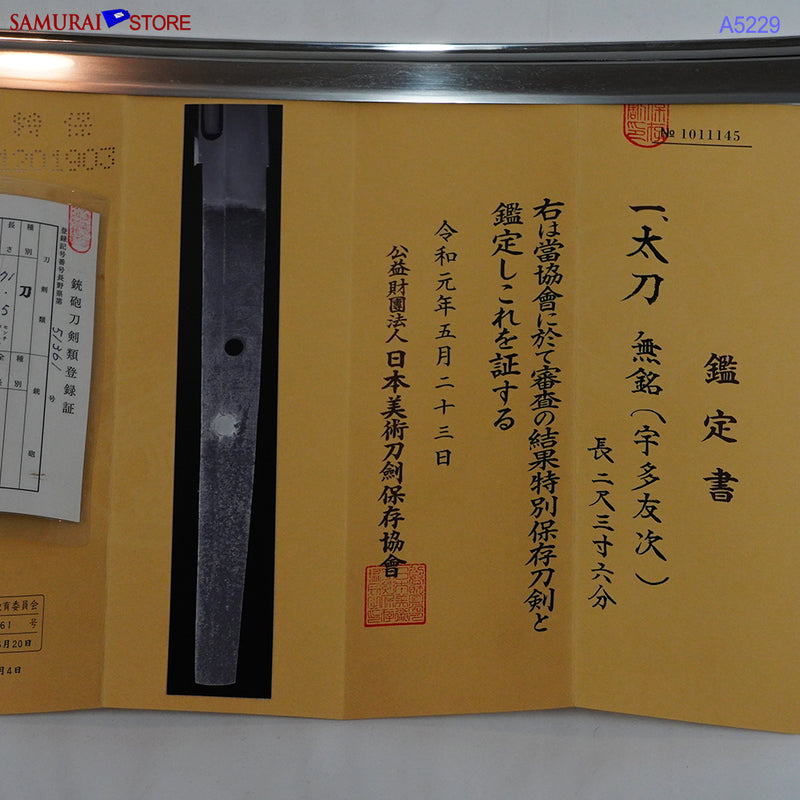 SAMURAI STORE
A5229
№ 1011145
鑑定書
一、太刀 無銘(宇多友次)
長二尺三寸六分
右は當協會に於て審査の結果特別保存刀剣と
鑑定しこれを証する
令和元年五月二十三日
公益財團法人 日本美術刀劍保存協會
特保
1201903
銃砲刀剣類登録証
登録記号番号長野県第 51361 号
種別 刀剣類
刀
長さ
71.5
センチ
種別 銃砲
教育委員会
61 号
月20日
月4日